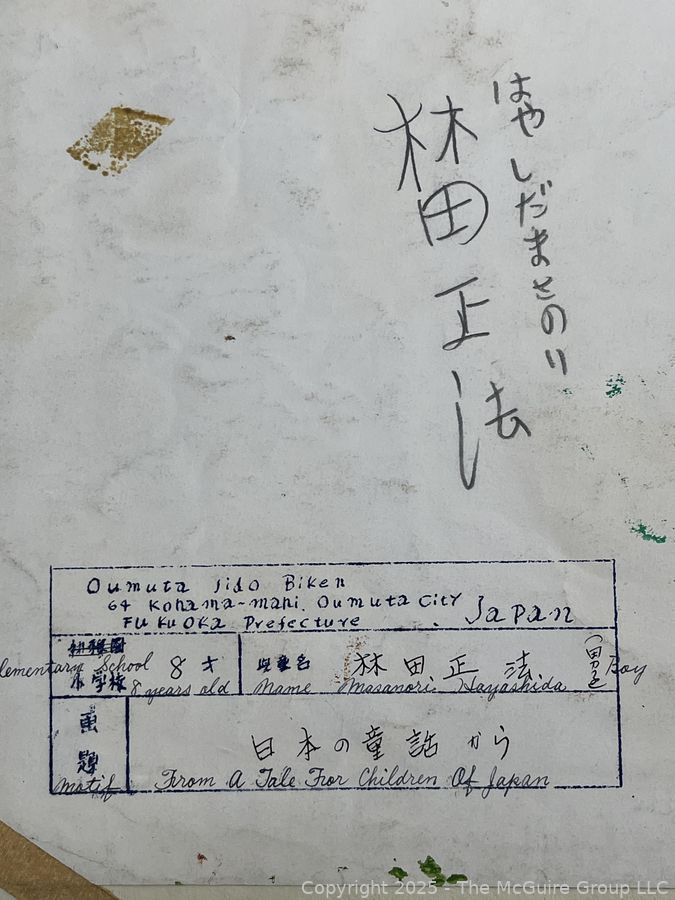 はやしだまさのり
林田正法
Oumuta Jido Biken
64 Kohama-mahi. Oumuta City
FUKUOKA Prefecture. Japan
幼稚園
Elementary School 8才
小学校 8 years old
児童名 林田正法 (男子) Boy
Name Masanori Hayashida
画題 日本の童話から
Motif From A Tale For Children Of Japan
Copyright 2025 - The McGuire Group LLC